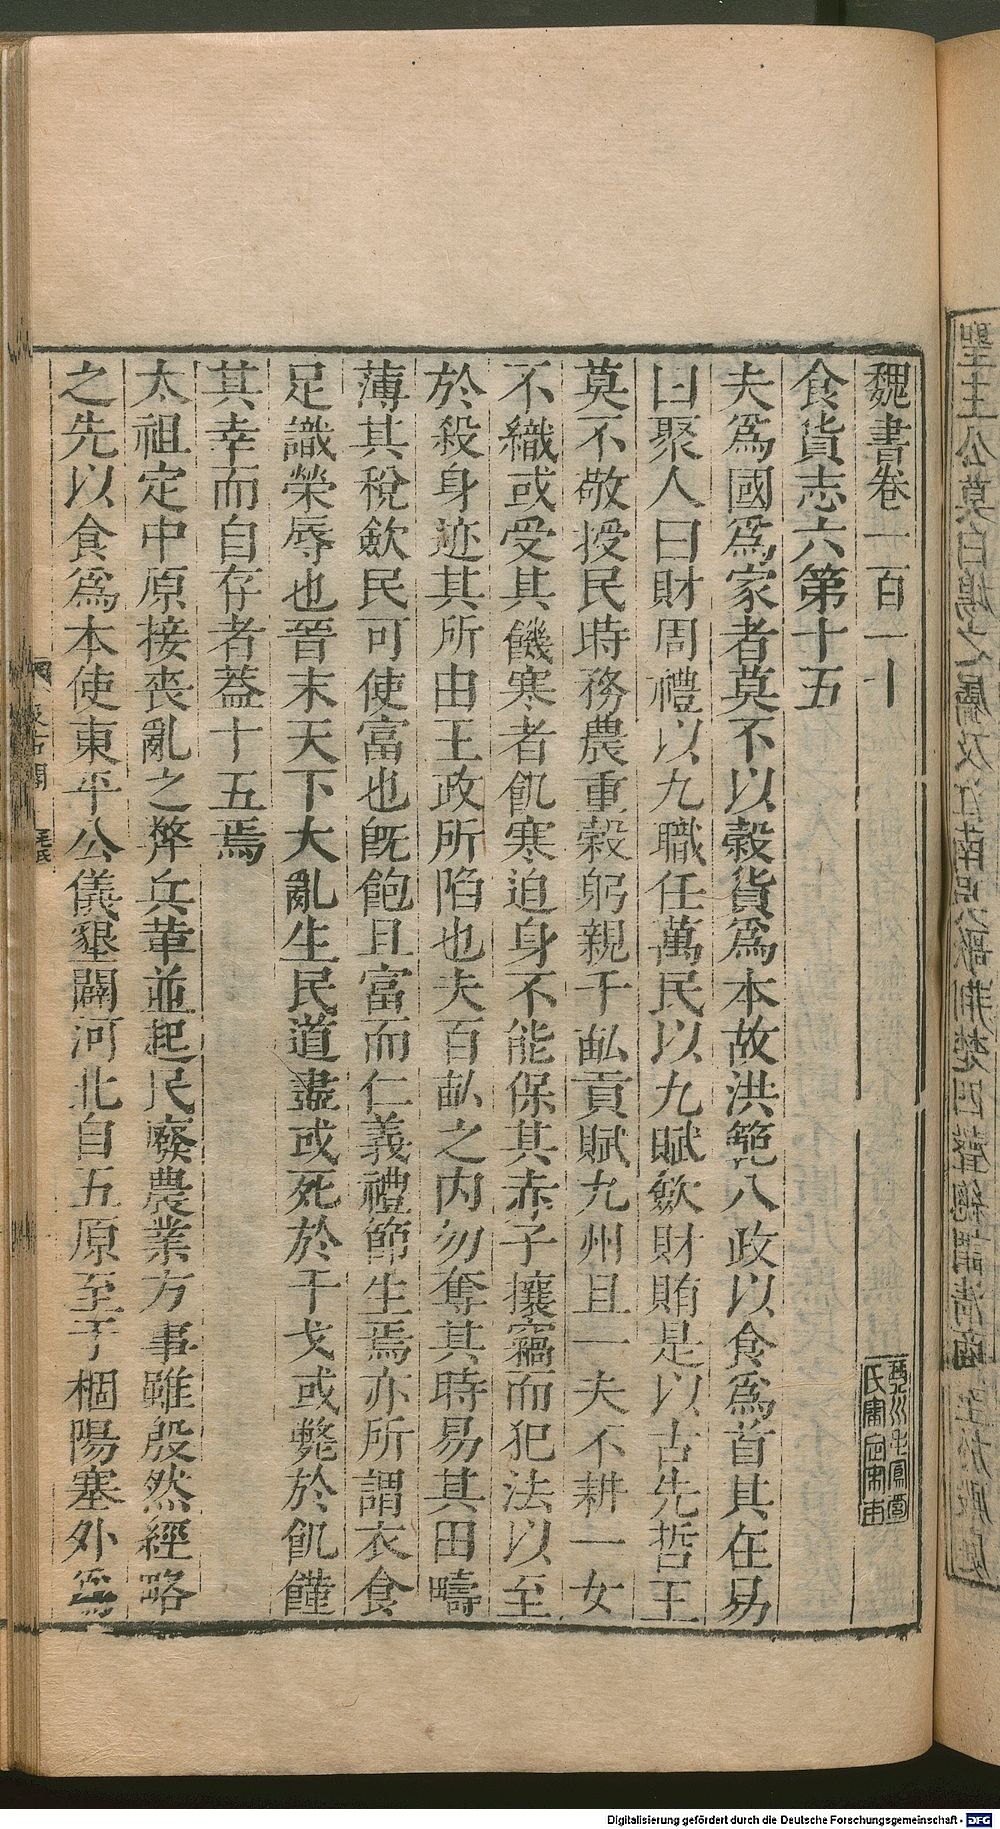 魏書卷一百一十
食貨志六第十五
夫爲國爲家者莫不以穀貨爲本故洪範八政以食爲首其在易
曰聚人曰財周禮以九職任萬民以九賦歛財賄是以古先哲王
莫不敬授民時務農重穀躬親千畝貢賦九州且一夫不耕一女
不織或受其饑寒者飢寒迫身不能保其赤子攘竊而犯法以至
於殺身迹其所由王政所陷也夫百畝之内勿奪其時易其田疇
薄其稅歛民可使富也旣飽且富而仁義禮節生焉亦所謂衣食
足識榮辱也晉末天下大亂生民道盡或死於干戈或斃於飢饉
其幸而自存者葢十五焉
太祖定中原接喪亂之弊兵革並起民廢農業方事雖殷然經略
之先以食爲本使東平公儀墾闢河北自五原至于棝陽塞外爲
Digitalisierung gefördert durch die Deutsche Forschungsgemeinschaft - DFG